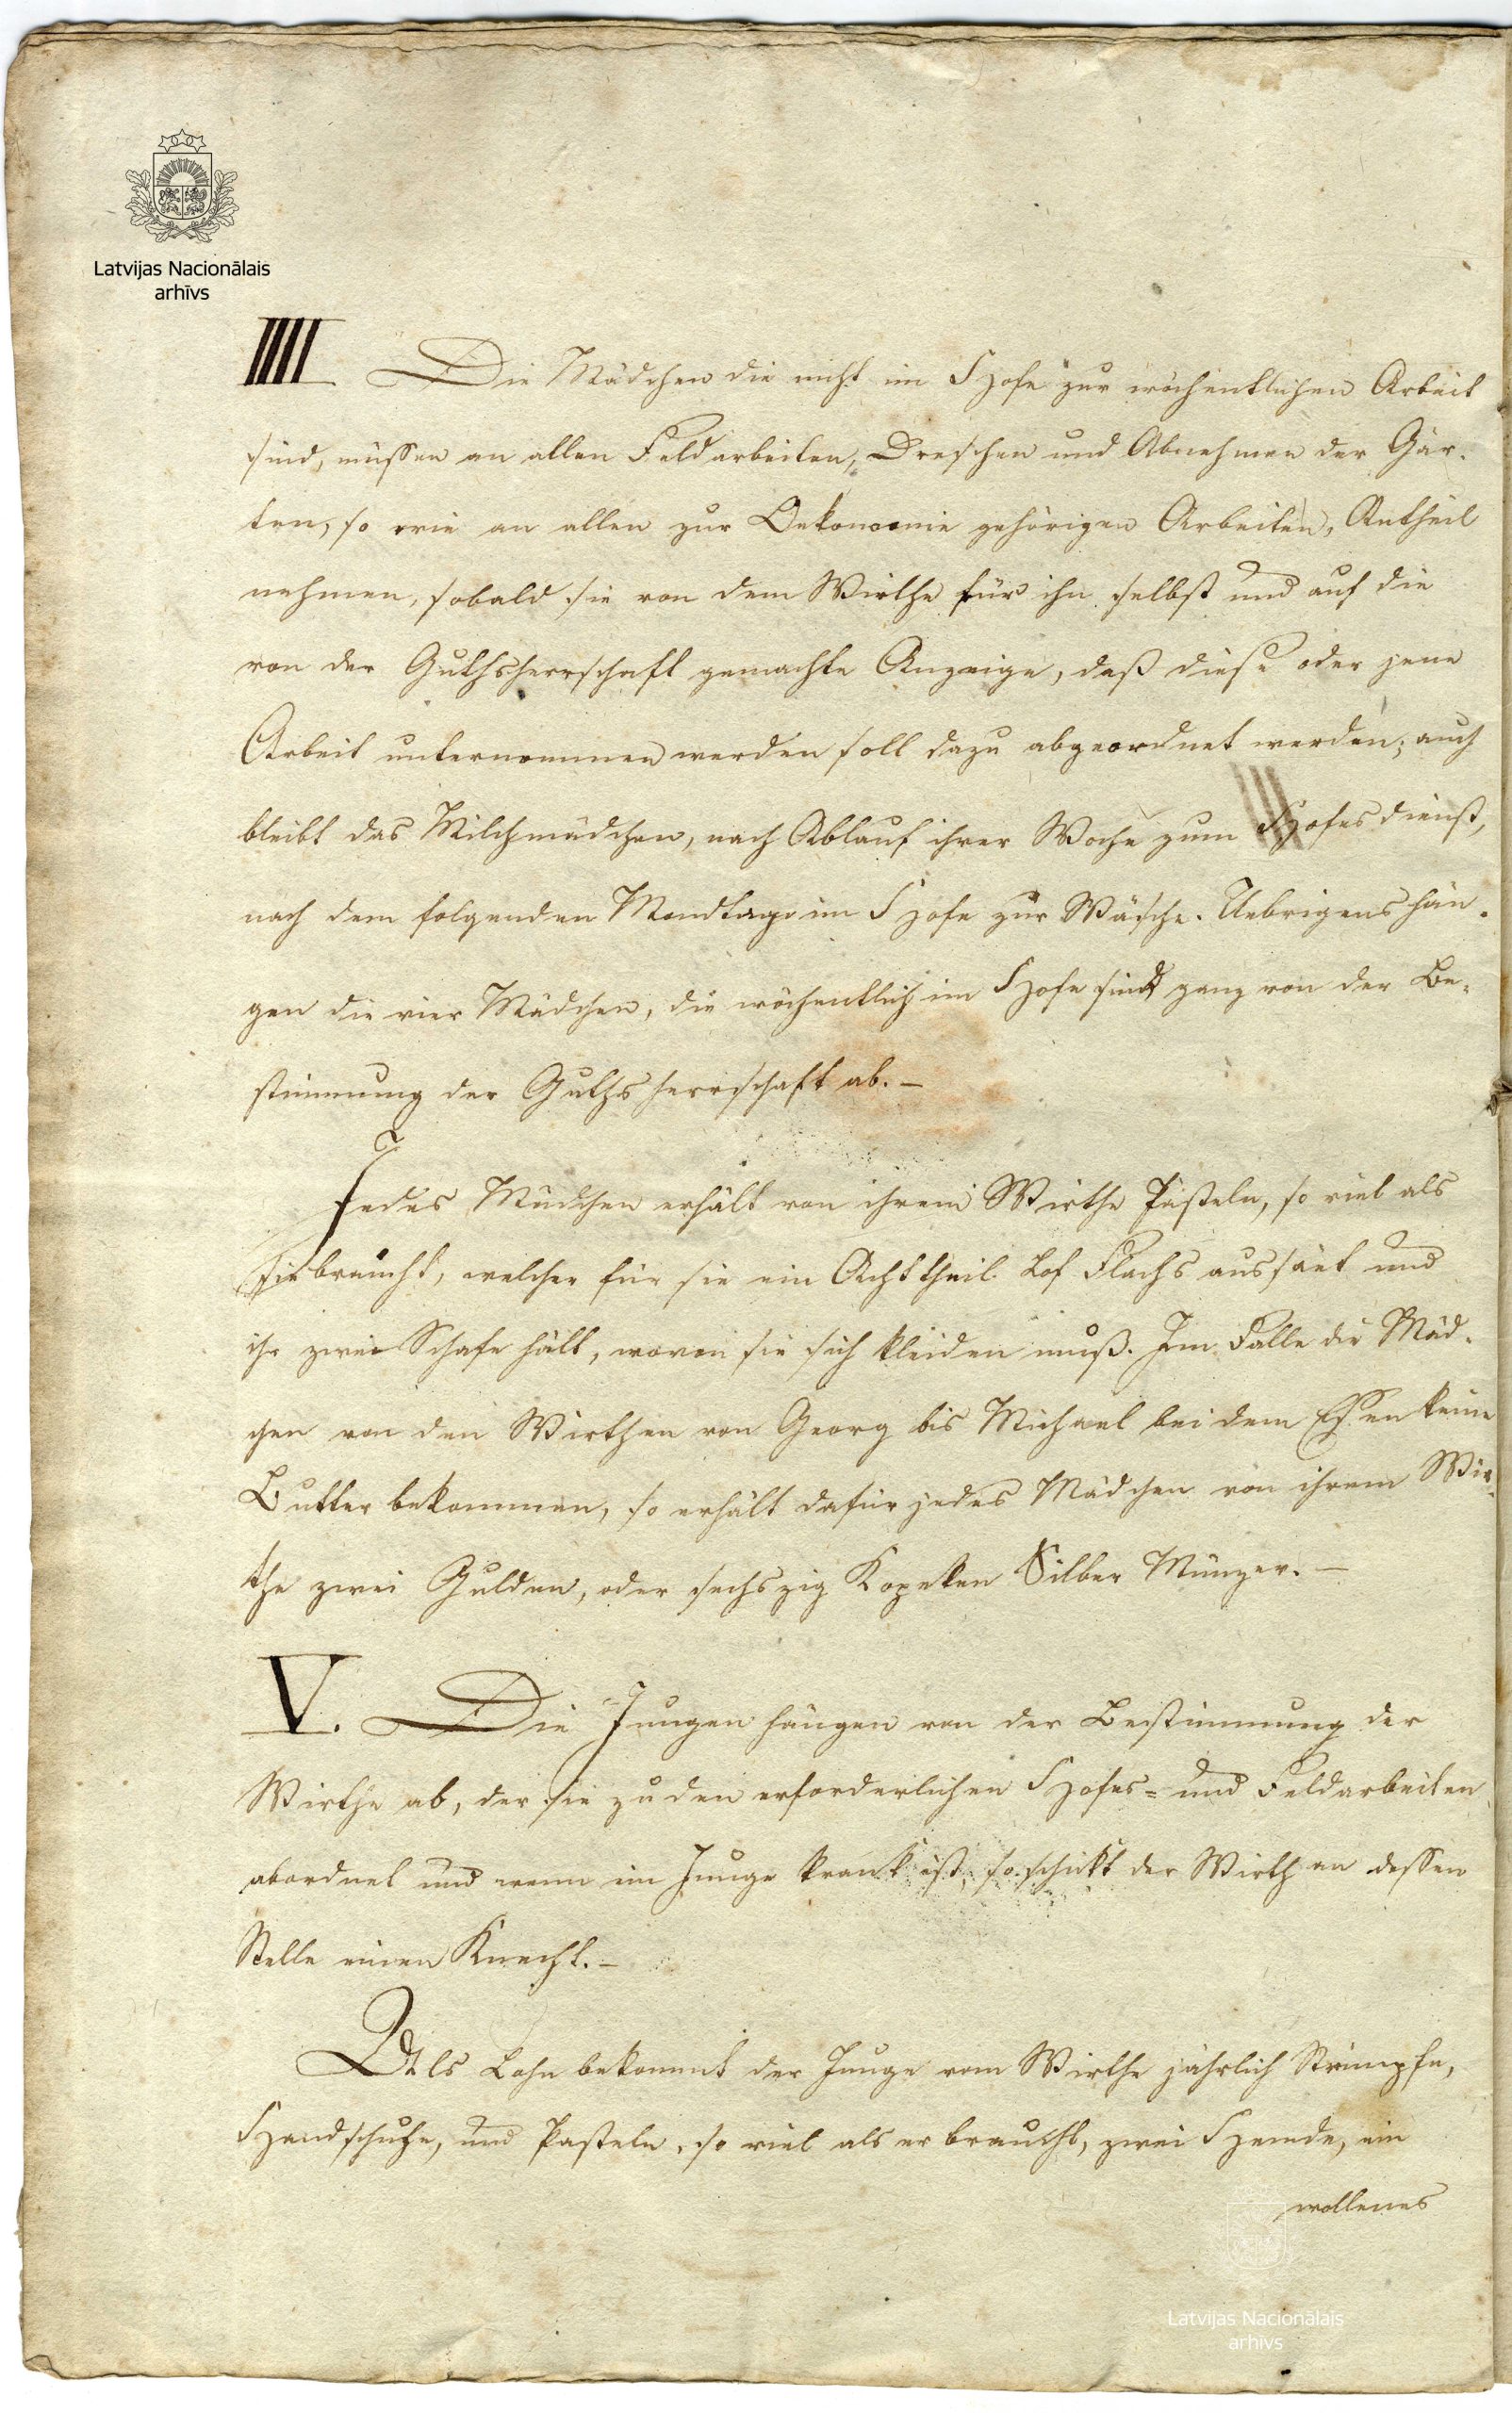 Latvijas Nacionālais
arhīvs
IIII. Die Mädchen die nicht im Hofe zur wöchentlichen Arbeit
sind, müssen an allen Feldarbeiten, Dreschen und Abnehmen der Gär-
ten, so wie an allen zur Oekonomie gehörigen Arbeiten, Antheil
nehmen, sobald sie von dem Wirthe für ihn selbst und auf die
von der Guthsherrschaft gemachte Anzeige, daß diese oder jene
Arbeit unternommen werden soll dazu abgeordnet werden; auch
bleibt das Milchmädchen, nach Ablauf ihrer Woche zum Hofesdienst,
nach dem folgenden Mondtage im Hofe zur Wäsche. Uebrigens hän-
gen die vier Mädchen, die wöchentlich im Hofe sind ganz von der Be-
stimmung der Guthsherrschaft ab. –
Jedes Mädchen erhält von ihrem Wirthe Pasteln, so viel als
sie braucht, welcher für sie ein Achttheil Lof Flachs aussäet und
ihr zwei Schafe hält, wovon sie sich kleiden muß. Im Falle die Mäd-
chen von den Wirthen von Georg bis Michael bei dem Essen keine
Butter bekommen, so erhält dafür jedes Mädchen von ihrem Wir-
the zwei Gulden, oder sechszig Kopeken Silber Münzer. –
V. Die Jungen hängen von der Bestimmung der
Wirthe ab, der sie zu den erforderlichen Hofes- und Feldarbeiten
abordnet und wenn ein Junge krank ist, so schickt der Wirth an dessen
Stelle einen Knecht. –
Als Lohn bekommt der Junge vom Wirthe jährlich Strümpfe,
Handschuhe, und Pasteln, so viel als er braucht, zwei Hemde, ein
wollenes
Latvijas Nacionālais
arhīvs